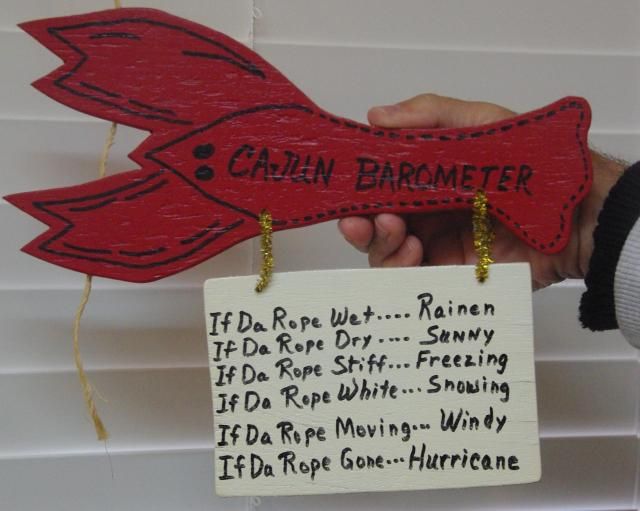 CAJUN BAROMETER
If Da Rope Wet.... Rainen
If Da Rope Dry.... Sunny
If Da Rope Stiff... Freezing
If Da Rope White... Snowing
If Da Rope Moving... Windy
If Da Rope Gone... Hurricane